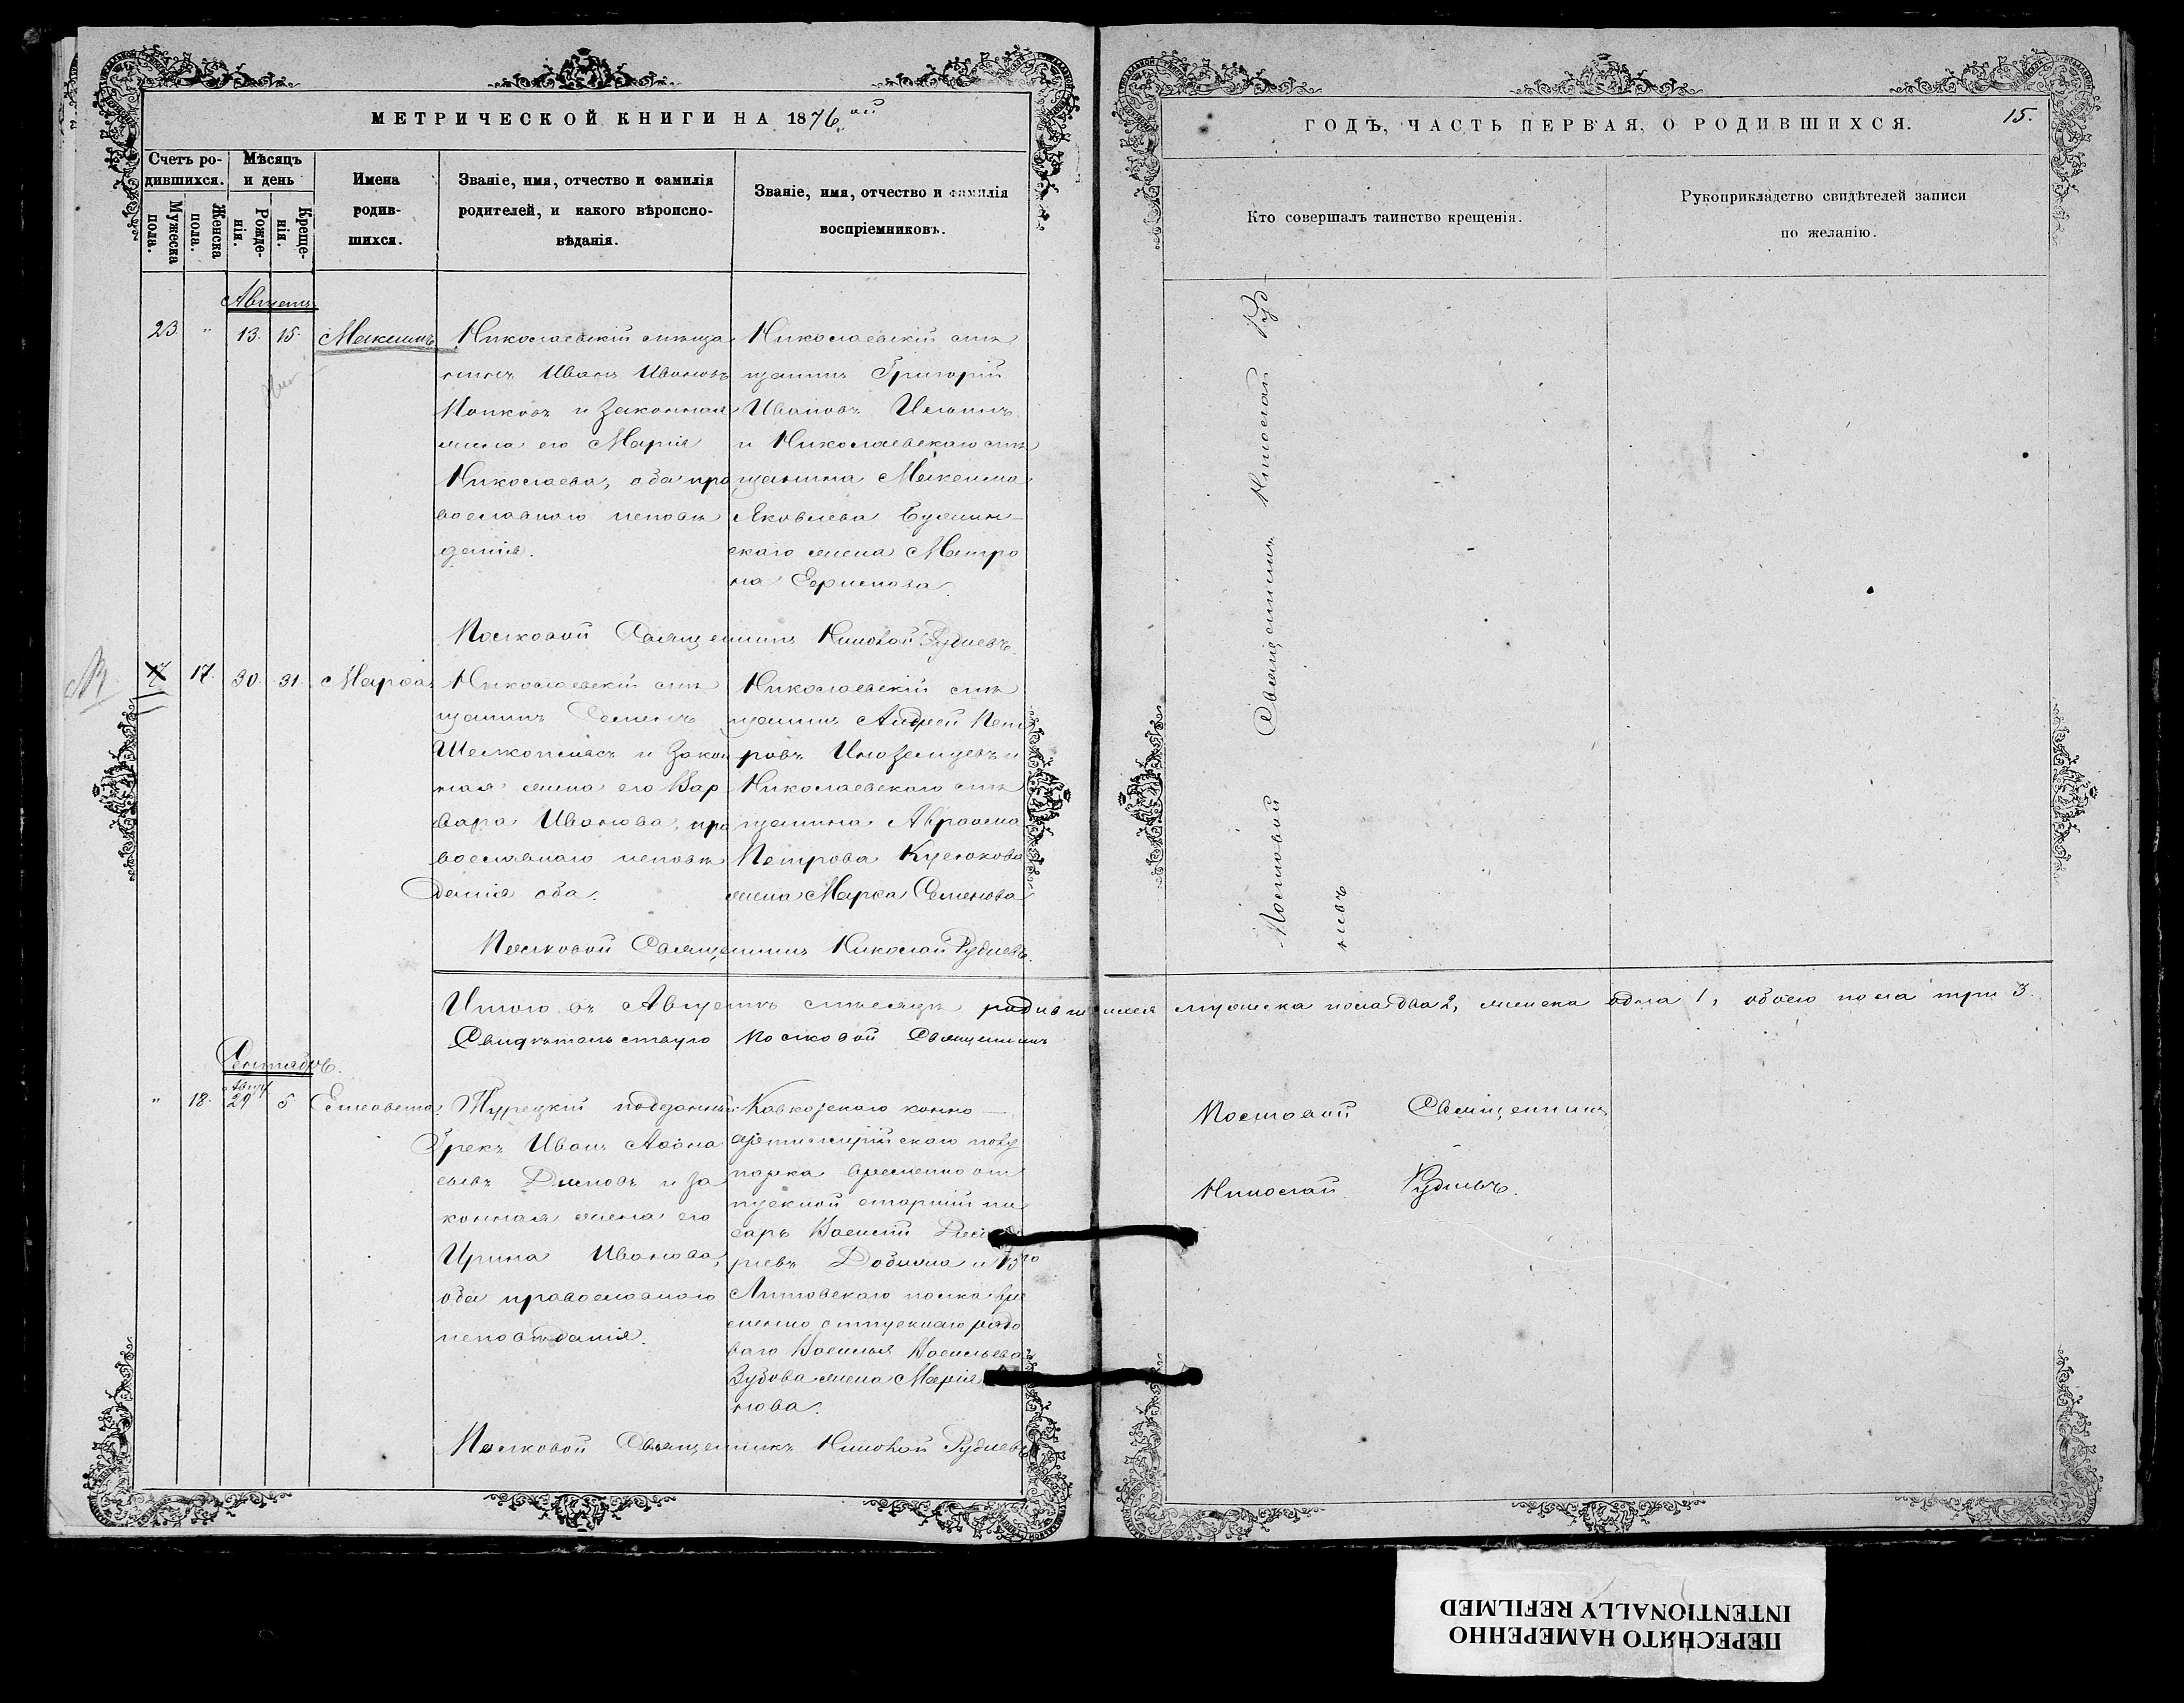 МЕТРИЧЕСКОЙ КНИГИ НА 1876 ой
Счетъ ро-
дившихся.
Мужеска
пола.
Женска
пола.
Мѣсяцъ
и день
Рожде-
нія.
Креще-
нія.
Имена
родив-
шихся.
Званіе, имя, отчество и фамилія
родителей, и какого вѣроиспо-
вѣданія.
Званіе, имя, отчество и фамилія
воспріемниковъ.
Августъ
23. " 13. 15. Максимъ
Николаевскій мѣща
нинъ Иванъ Ивановъ
Попковъ и законная
жена его Марія
Николаева, оба пра
вославнаго исповѣ
данія.
Николаевскій мѣ
щанинъ Григорій
Ивановъ Ильинъ
и Николаевскаго мѣ
щанина Максима
Яковлева
скаго жена Матро
на
Полковой Священникъ Николай Рудневъ.
17. 30. 31. Марѳа
Николаевскій мѣ
щанинъ Семенъ
и закон
ная жена его Вар
вара Иванова, пра
вославнаго исповѣ
данія оба.
Николаевскій мѣ
щанинъ Андрей Пет
ровъ Иноземцевъ и
Николаевскаго мѣ
щанина Авраама
Петрова
жена Марѳа Семенова
Полковой Священникъ Николай Рудневъ.
Итого въ Августѣ мѣсяцѣ родившихся мужеска пола два 2, женска одна 1, обоего пола три 3.
Свидѣтельствую Полковой Священникъ
Сентябрь.
" 18. Авгус 29 5 Елисавета
Турецкій подданный
Грекъ Иванъ Аѳана
сьевъ и за
конная жена его
Ирина Иванова,
оба православнаго
исповѣданія.
Кавказскаго конно-
артиллерійскаго
парка временно от
пускной старшій пи
сарь Василій
ріевъ и 15го
полка вре
менно отпускнаго рядо
ваго Василья Васильева
Зубова жена Марія
нова.
Полковой Священникъ Николай Рудневъ
ГОДЪ, ЧАСТЬ ПЕРВАЯ, О РОДИВШИХСЯ.
15.
Кто совершалъ таинство крещенія.
Рукоприкладство свидѣтелей записи
по желанію.
Полковой Священникъ Николай Руд
невъ
Полковой Священникъ
Николай Рудневъ.
ПЕРЕСНЯТО НАМЕРЕННО
INTENTIONALLY REFILMED